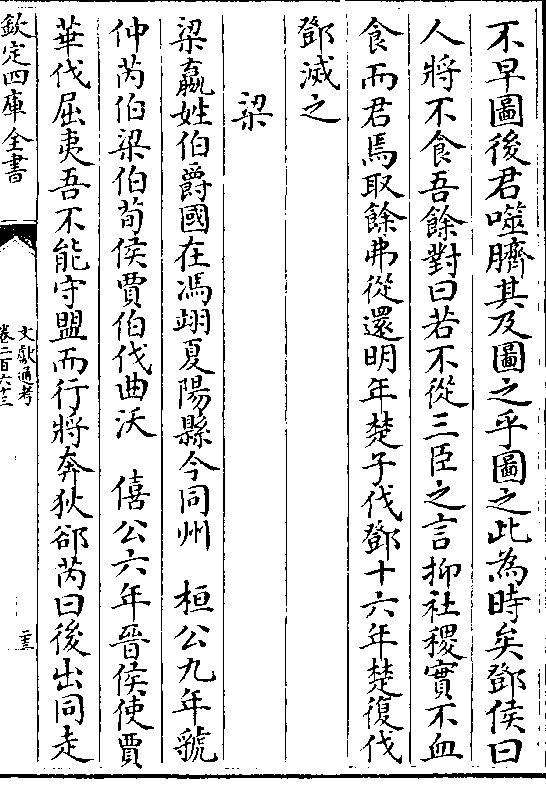 不早圖後君噬臍其及圖之乎圖之此為時矣鄧侯曰
人將不食吾餘對曰若不從三臣之言抑社稷實不血
食而君焉取餘弗從還明年楚子伐鄧十六年楚復伐
鄧滅之
梁
梁嬴姓伯爵國在馮翊夏陽縣今同州 桓公九年虢
仲芮伯梁伯荀侯賈伯伐曲沃 僖公六年晉侯使賈
華伐屈夷吾不能守盟而行將奔狄郤芮曰後出同走
欽定四庫全書
文獻通考
卷二百六十三